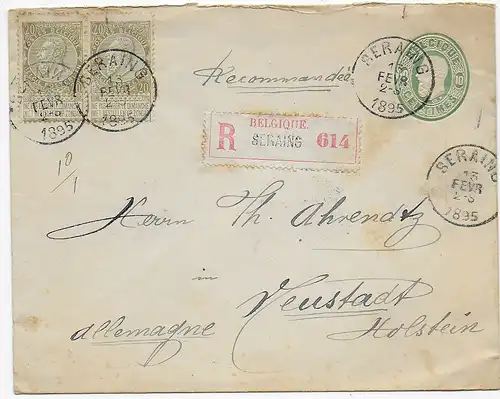 20 BELGIQUE 20
SERAING
13
FEVR
2-3
1895
SERAING
13
FEVR
2-3
1895
BELGIQUE
10
CENTIMES
Recommandée
R
BELGIQUE.
SERAING
614
SERAING
13
FEVR
2-3
1895
10/1
Herrn Th. Ahrendtz
in
Neustadt
Allemagne
Holstein